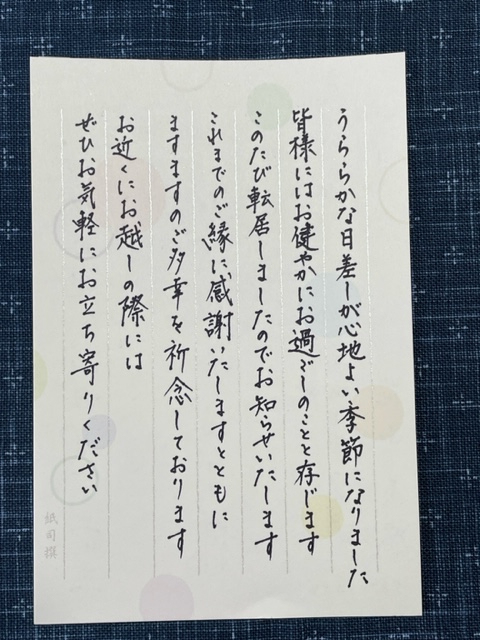 うららかな日差しが心地よい季節になりました
皆様にはお健やかにお過ごしのことと存じます
このたび転居しましたのでお知らせいたします
これまでのご縁に感謝いたしますとともに
ますますのご多幸を祈念しております
お近くにお越しの際には
ぜひお気軽にお立ち寄りください
紙司撰